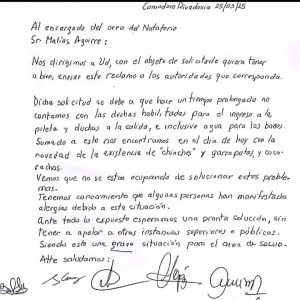 Comodoro Rivadavia 25/03/25
Al encargado del area del Natatorio
Sr. Matías Aguirre:
Nos dirigimos a Ud, con el objeto de solicitarle quiera tener
a bien, enviar este reclamo a las autoridades que corresponda.
Dicha solicitud se debe a que hace un tiempo prolongado no
contamos con las duchas habilitadas para el ingreso a la
pileta y duchas a la salida, e inclusive agua para los baños.
Sumado a esto nos encontramos en el día de hoy con la
novedad de la existencia de "chinches" y garrapatas, y cuca-
rachas.
Vemos que no se están ocupando de solucionar estos proble-
mas.
Tenemos conocimiento que algunas personas han manifestado
alergias debido a esta situación.
Ante todo lo expuesto esperamos una pronta solución, sin
tener a apelar a otras instancias superiores o públicas.
Siendo esto una grave situación para el area de salud.
Atte saludamos: